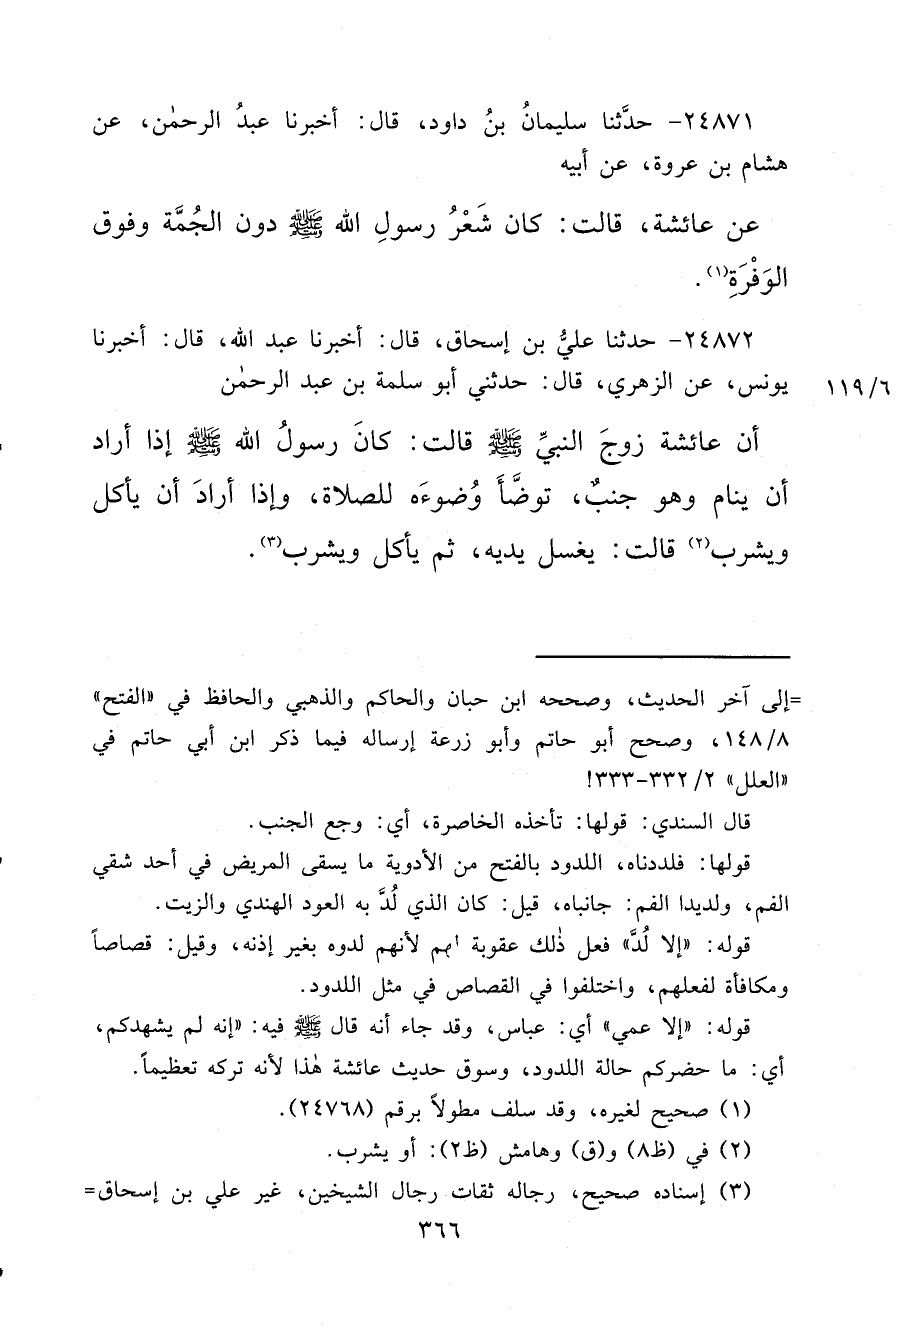 ٢٤٨٧١- حدَّثنا سليمانُ بنُ داود، قال: أخبرنا عبدُ الرحمٰن، عن
هشام بن عروة، عن أبيه
عن عائشة، قالت: كان شَعْرُ رسولِ الله ﷺ دون الجُمَّة وفوق
الوَفْرَةِ(١).
٢٤٨٧٢- حدثنا عليُّ بن إسحاق، قال: أخبرنا عبد الله، قال: أخبرنا
يونس، عن الزهري، قال: حدثني أبو سلمة بن عبد الرحمٰن
١١٩/٦
أن عائشة زوجَ النبيِّ ﷺ قالت: كانَ رسولُ الله ﷺ إذا أراد
أن ينام وهو جنبٌ، توضَّأَ وُضوءَه للصلاة، وإذا أرادَ أن يأكل
ويشرب(٢) قالت: يغسل يديه، ثم يأكل ويشرب(٣).
=إلى آخر الحديث، وصححه ابن حبان والحاكم والذهبي والحافظ في «الفتح»
١٤٨/٨، وصحح أبو حاتم وأبو زرعة إرساله فيما ذكر ابن أبي حاتم في
«العلل» ٢/ ٣٣٢-٣٣٣!
قال السندي: قولها: تأخذه الخاصرة، أي: وجع الجنب.
قولها: فلددناه، اللدود بالفتح من الأدوية ما يسقى المريض في أحد شقي
الفم، ولديدا الفم: جانباه، قيل: كان الذي لُدَّ به العود الهندي والزيت.
قوله: «إلا لُدَّ» فعل ذٰلك عقوبة لهم لأنهم لدوه بغير إذنه، وقيل: قصاصاً
ومكافأة لفعلهم، واختلفوا في القصاص في مثل اللدود.
قوله: «إلا عمي» أي: عباس، وقد جاء أنه قال ﷺ فيه: «إنه لم يشهدكم،
أي: ما حضركم حالة اللدود، وسوق حديث عائشة هٰذا لأنه تركه تعظيماً.
(١) صحيح لغيره، وقد سلف مطولاً برقم (٢٤٧٦٨).
(٢) في (ظ٨) و(ق) وهامش (ظ٢): أو يشرب.
(٣) إسناده صحيح، رجاله ثقات رجال الشيخين، غير علي بن إسحاق=
٣٦٦